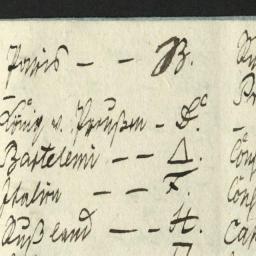 Paris — — B.
König v. Preußen — D.
Bartelemi — — Δ.
Italien — — F.
Rußland — — H.